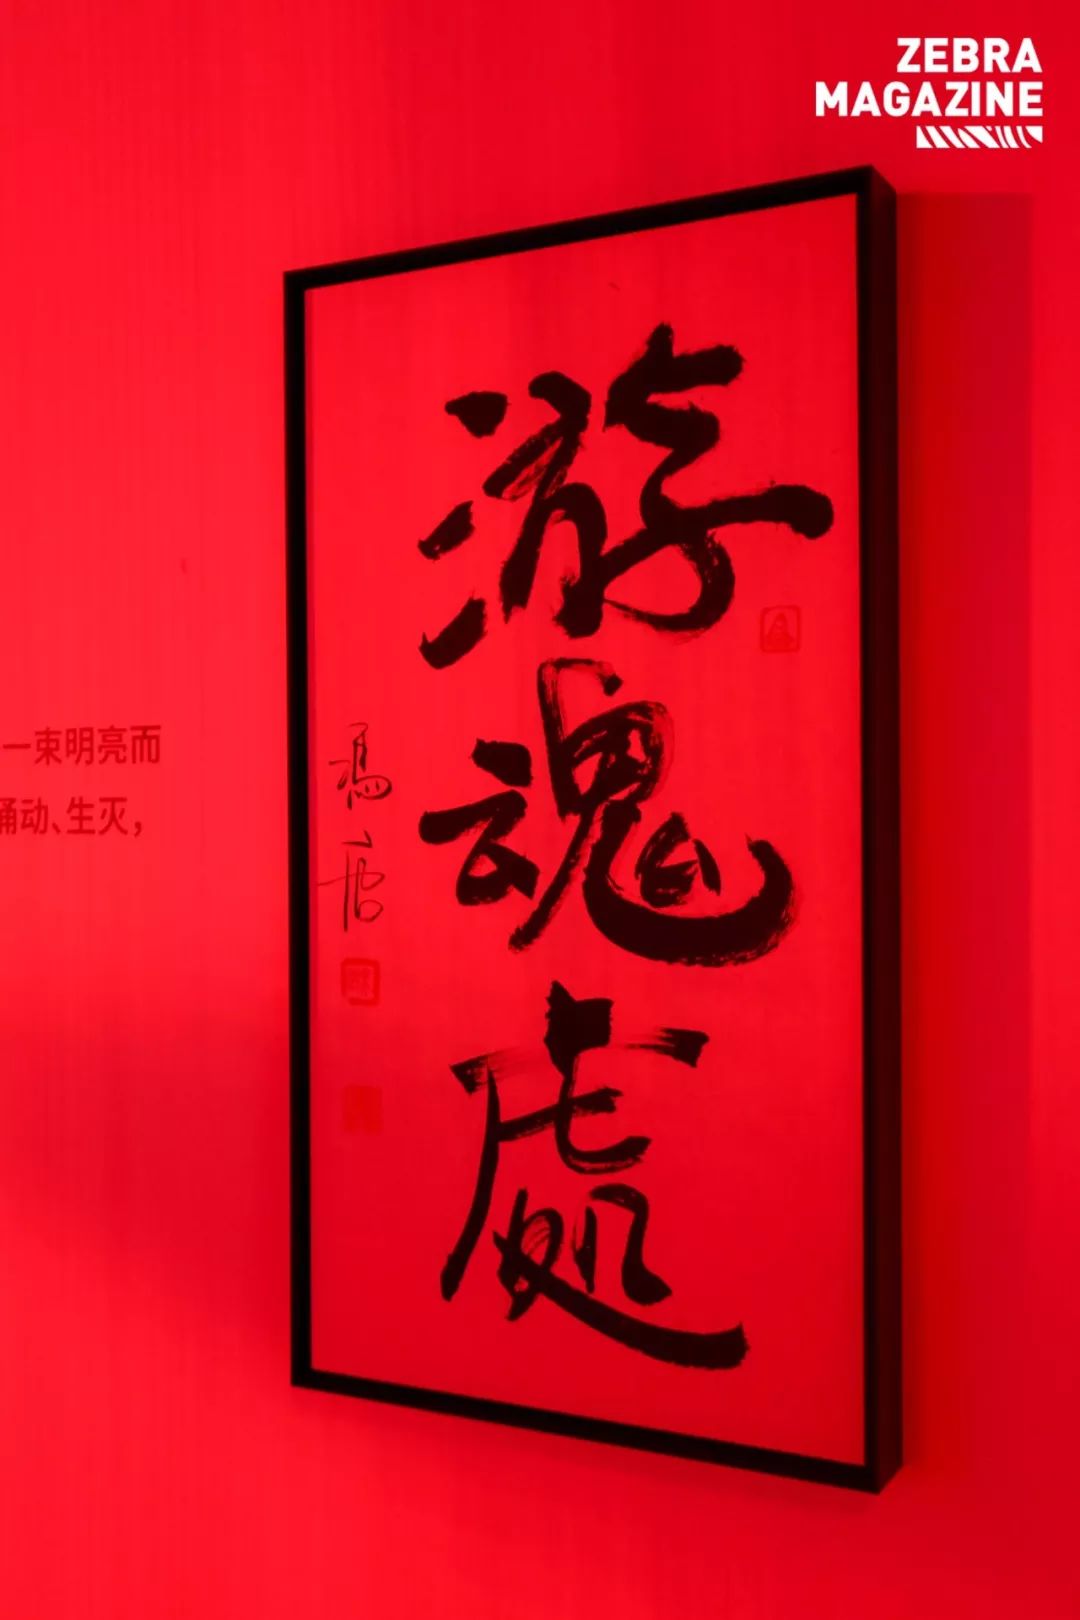 ZEBRA
MAGAZINE
一束明亮而
涌动、生灭，
游魂處
馮唐